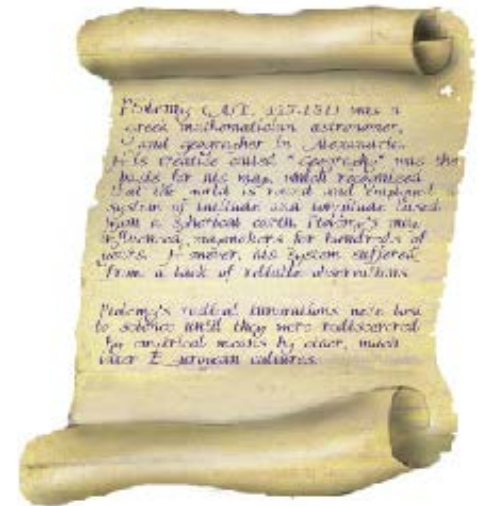 Ptolemy (A.D. 127-151) was a
Greek mathematician astronomer,
and geographer in Alexandria.
His treatise called "Geography" was the
basis for his map, which recognized
that the world is round and employed a
system of latitude and longitude based
upon a spherical earth. Ptolemy's map
influenced mapmakers for hundreds of
years. However, his system suffered
from a lack of reliable observations.
Ptolemy's radical innovations were lost
to science until they were rediscovered
by empirical means by other, much
later European cultures.